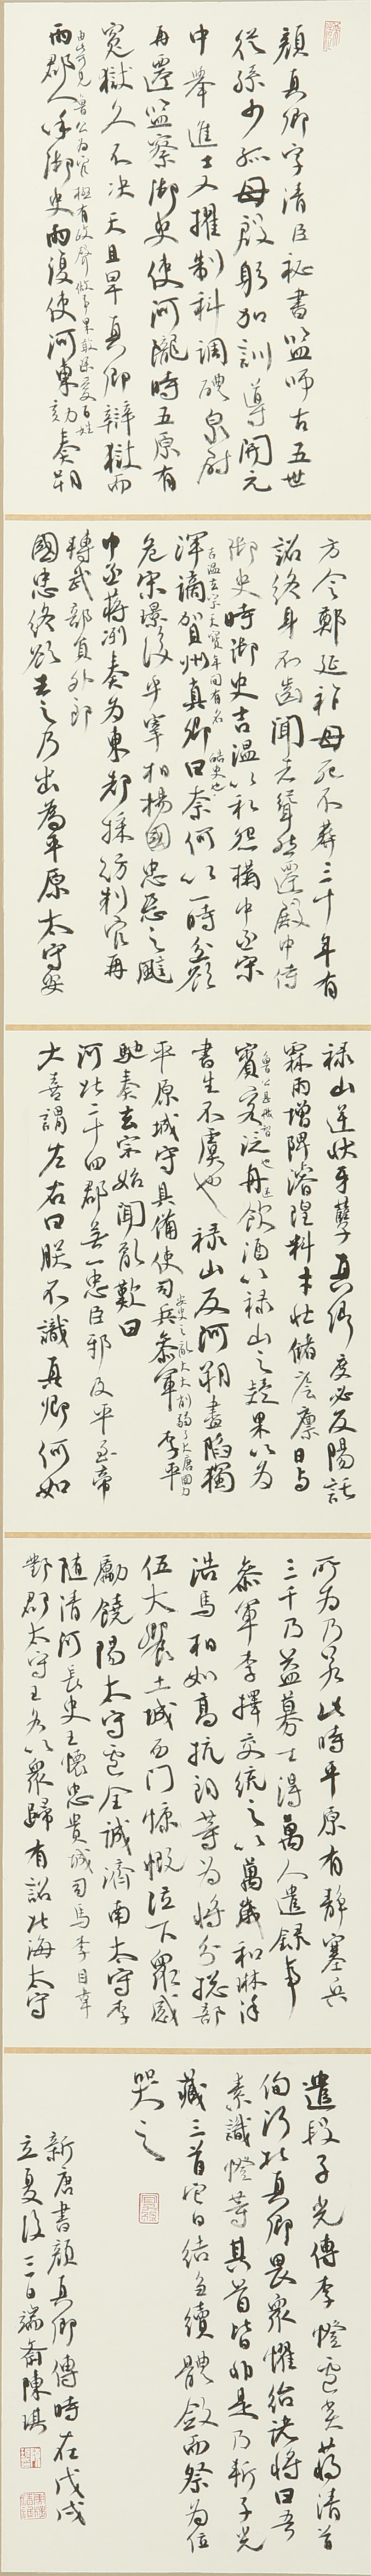 顏真卿字清臣祕書監師古五世
從孫少孤母殷躬加訓導開元
中舉進士又擢制科調醴泉尉
再遷監察御史使河隴時五原有
冤獄久不決天且旱真卿辯獄而
由此可見魯公為官極有政聲
雨郡人呼御史雨復使河東劾奏朔
方令鄭延祚母死不葬三十年有
詔終身不齒聞者聳然遷殿中侍
御史時御史吉溫以私怨構中丞宋
渾謫賀州真卿曰奈何以一時忿欲
危宋璟後乎宰相楊國忠惡之諷
中丞蔣冽奏為東都採訪判官再
轉武部員外郎
國忠終欲去之乃出為平原太守安
祿山逆狀牙孽真卿度必反陽託
霖雨增陴濬隍料才壯儲廥廩日與
賓客泛舟飲酒以祿山之疑果以為
書生不虞也祿山反河朔盡陷獨
平原城守具備使司兵參軍李平
馳奏玄宗始聞亂歎曰
河北二十四郡無一忠臣邪及平至帝
大喜謂左右曰朕不識真卿何如
所為乃若此時平原有靜塞兵
三千乃益募士得萬人遣錄事
參軍李擇交統之以萬歲和琳徐
浩馬相如高抗朗等為將分總部
伍大饗士城西門慷慨泣下眾感
勵饒陽太守盧全誠濟南太守李
隨清河長史王懷忠貴城司馬李目韋
鄴郡太守王燾以眾歸有詔北海太守
遣段子光傳李憕盧奕蔣清首
徇河北真卿畏眾懼紿諸將曰吾
素識憕等其首皆非是乃斬子光
藏三首它日結芻續體斂而祭為位
哭之
新唐書顏真卿傳時在戊戌
立夏後三日端齋陳琪